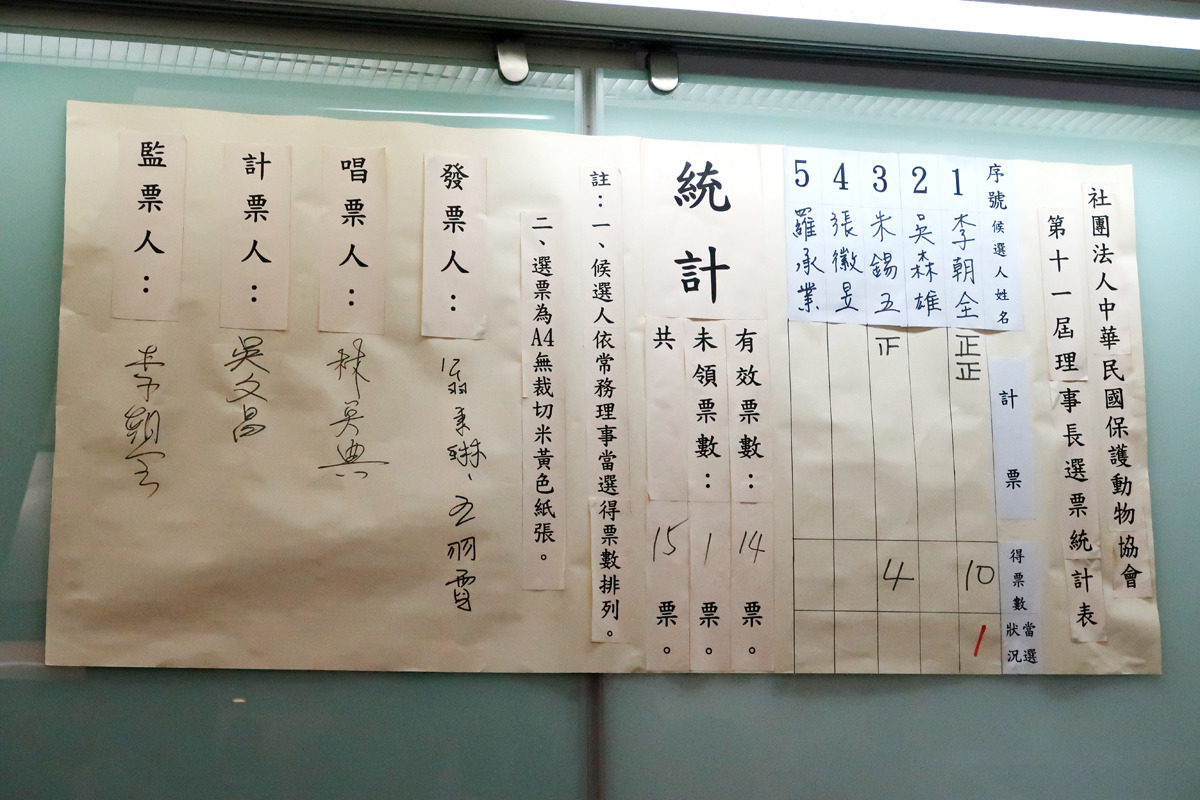 社團法人中華民國保護動物協會
第十一屆理事長選票統計表
序號 候選人姓名 計票 得票數 當選狀況
1 李朝全 正正 10 1
2 吳森雄
3 朱錫五 正 4
4 張徽昱
5 羅承業
統計
有效票數：14票。
未領票數：1票。
共15票。
註：一、候選人依常務理事當選得票數排列。
二、選票為A4無裁切米黃色紙張。
發票人：
唱票人：林吳典
計票人：吳文昌
監票人：李朝全